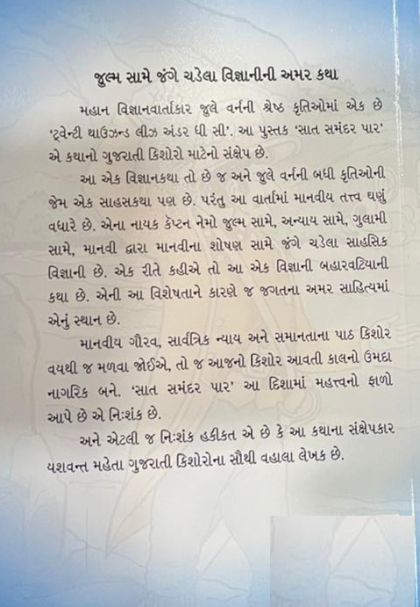 જુલ્મ સામે જંગે ચડેલા વિજ્ઞાનીની અમર કથા
મહાન વિજ્ઞાનવાર્તાકાર જુલે વર્નની શ્રેષ્ઠ કૃતિઓમાં એક છે
‘ટ્વેન્ટી થાઉઝન્ડ લીગ્ઝ અંડર ધી સી’. આ પુસ્તક ‘સાત સમંદર પાર’
એ કથાનો ગુજરાતી કિશોરો માટેનો સંક્ષેપ છે.
આ એક વિજ્ઞાનકથા તો છે જ અને જુલે વર્નની બધી કૃતિઓની
જેમ એક સાહસકથા પણ છે. પરંતુ આ વાર્તામાં માનવીય તત્ત્વ ઘણું
વધારે છે. એના નાયક કૅપ્ટન નેમો જુલ્મ સામે, અન્યાય સામે, ગુલામી
સામે, માનવી દ્વારા માનવીના શોષણ સામે જંગે ચડેલા સાહસિક
વિજ્ઞાની છે. એક રીતે કહીએ તો આ એક વિજ્ઞાની બહારવટિયાની
કથા છે. એની આ વિશેષતાને કારણે જ જગતના અમર સાહિત્યમાં
એનું સ્થાન છે.
માનવીય ગૌરવ, સાર્વત્રિક ન્યાય અને સમાનતાના પાઠ કિશોર
વયથી જ મળવા જોઈએ, તો જ આજનો કિશોર આવતી કાલનો ઉમદા
નાગરિક બને. ‘સાત સમંદર પાર’ આ દિશામાં મહત્ત્વનો ફાળો
આપે છે એ નિઃશંક છે.
અને એટલી જ નિઃશંક હકીકત એ છે કે આ કથાના સંક્ષેપકાર
યશવન્ત મહેતા ગુજરાતી કિશોરોના સૌથી વહાલા લેખક છે.